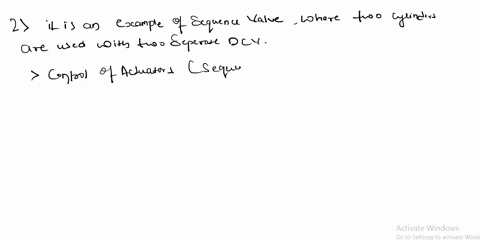 2> it is an example of Sequence Value, where two cylinders
are used with two Seperate DCV.
> Control of Actuators (Sequ
Activate Windows
Go to Settings to activate Wind